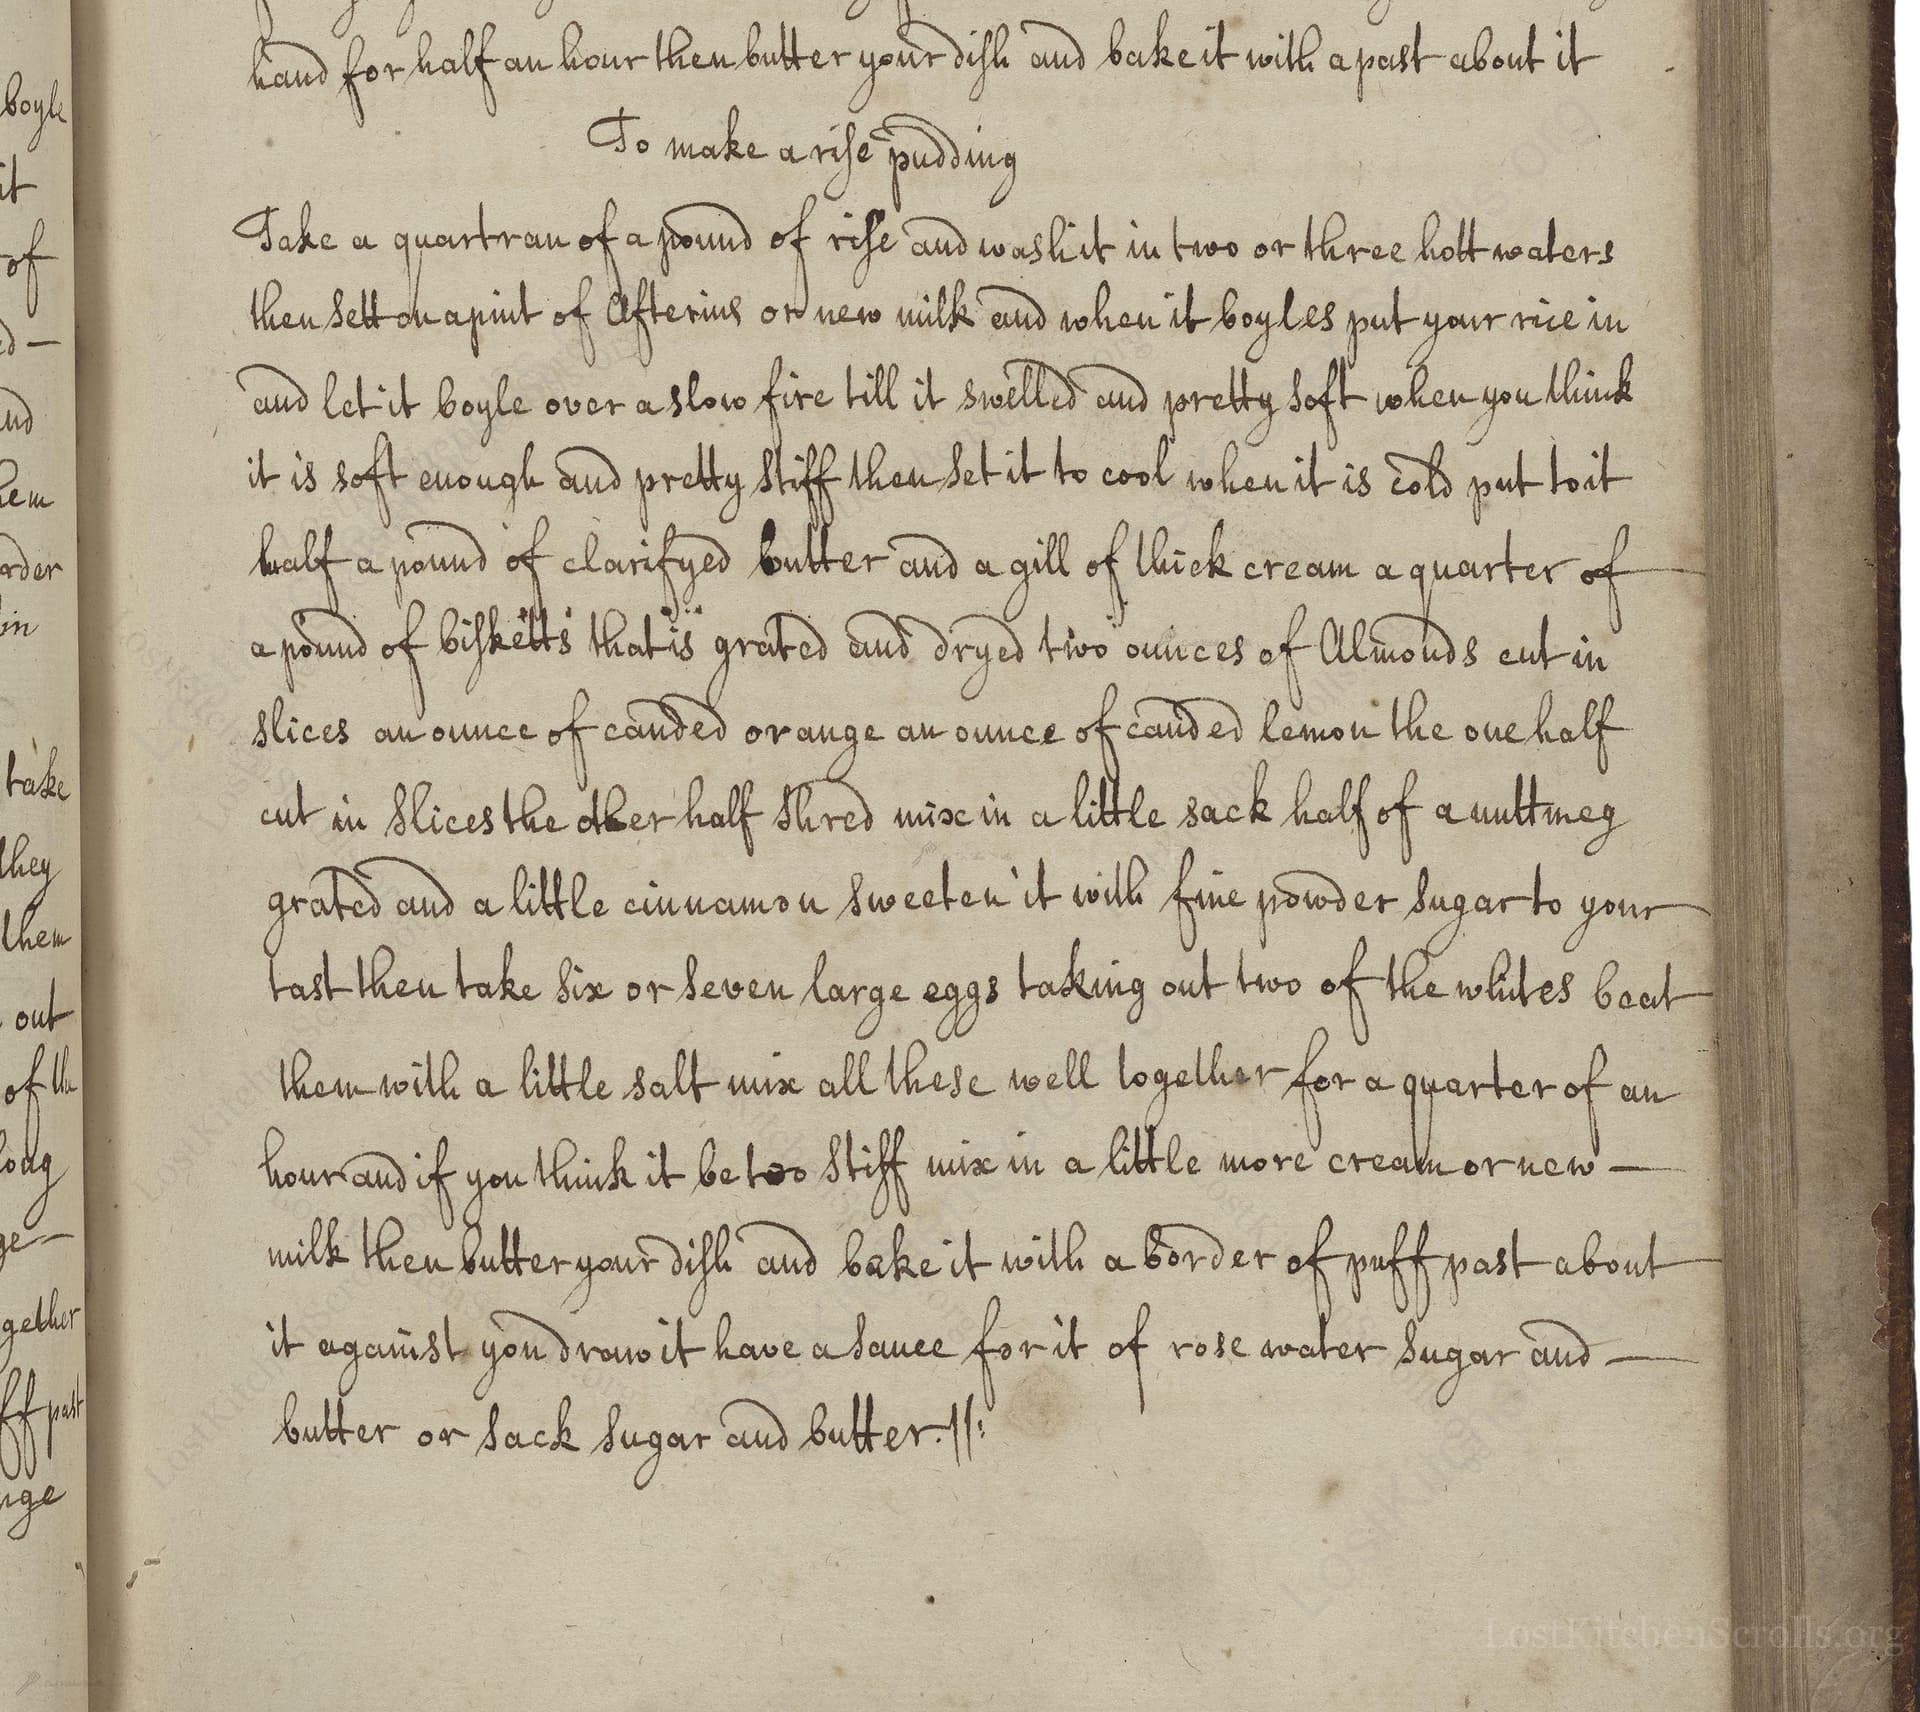 hand for half an hour then butter your dish and bake it with a past about it
To make a rise pudding
Take a quartran of a pound of rise and wash it in two or three hott waters
then sett on a pint of Afterins or new milk and when it boyles put your rice in
and let it boyle over a slow fire till it swelled and pretty soft when you think
it is soft enough and pretty stiff then set it to cool when it is cold put to it
half a pound of clarifyed butter and a gill of thick cream a quarter of
a pound of biskctts that is grated and dryed two ounces of Almonds cut in
slices an ounce of canded orange an ounce of canded lemon the one half
cut in slices the other half shred mix in a little sack half of a nuttmeg
grated and a little cinnamon sweeten it with fine powder sugar to your
tast then take six or seven large eggs taking out two of the whites beat
them with a little salt mix all these well together for a quarter of an
hour and if you think it be too stiff mix in a little more cream or new —
milk then butter your dish and bake it with a border of puff past about
it against you draw it have a sauce for it of rose water sugar and —
butter or sack sugar and butter.
boyle
it
of
take
they
them
out
of the
gether
past
LostKitchenScrolls.org